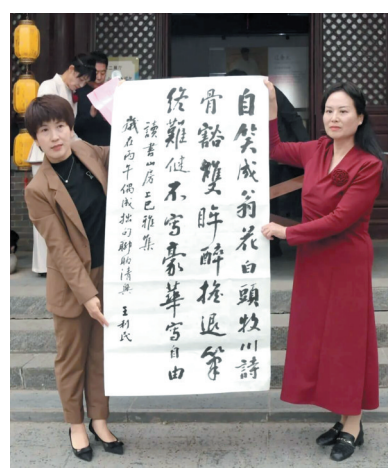 自笑成翁花白頭牧川詩
骨豁雙眸醉擔退筆
終難健不寫豪華寫自由
讀書山房上巳雅集
歲在丙午偶成拙句聊助清興 王利民